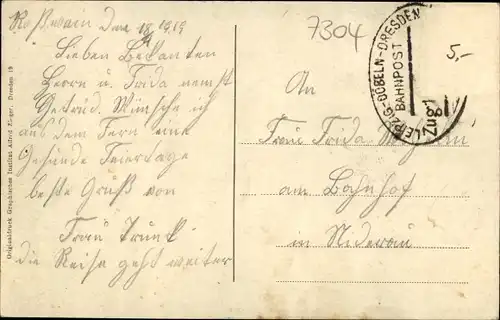 Roßwein den 18 1919
Lieben Bekanten
Herrn u. Frida nemst
Getrud. Wünsche ich
aus dem Fern eine
Gesunde Feiertage
beste Gruß von
Frau Trunk
die Reise geht weiter
Originaldruck Graphisches Institut Alfred Zieger, Dresden 19
7304
5,-
LEIPZIG-DÖBELN-DRESDEN
BAHNPOST
Zug
An
Frau Frida
am Bahnhof
in Niderau